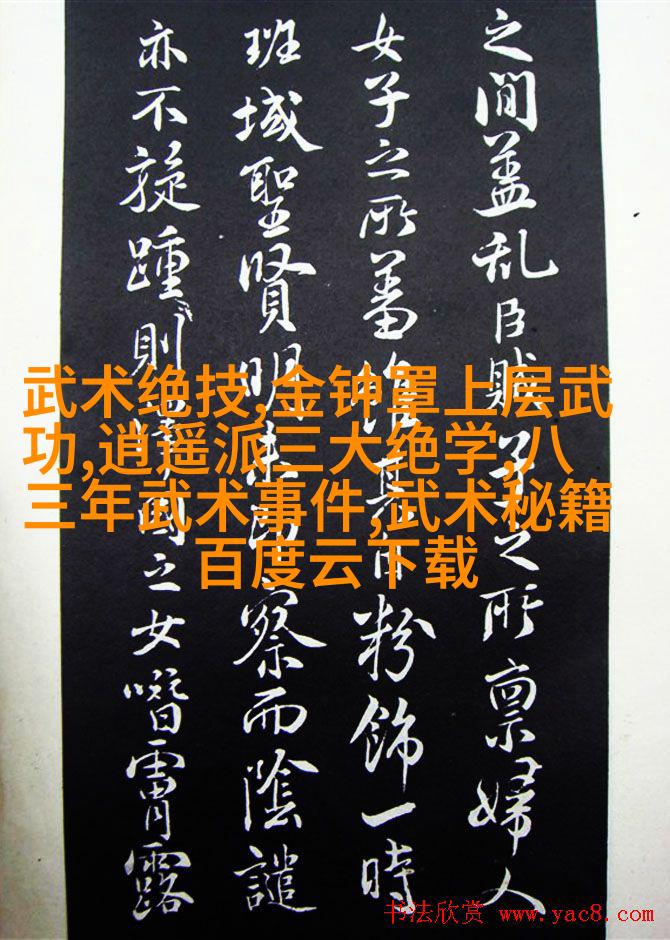 之間盖乱臣賊子之所禀婦人
女子之所蓄粉飾一時
班域聖賢明察而陰譴
亦不旋踵則國之女霄露
武术绝技,金钟罩上层武
功,逍遥派三大绝学,八
三年武术事件,武术秘籍
百度云下载
书法欣赏 www.yac8.com